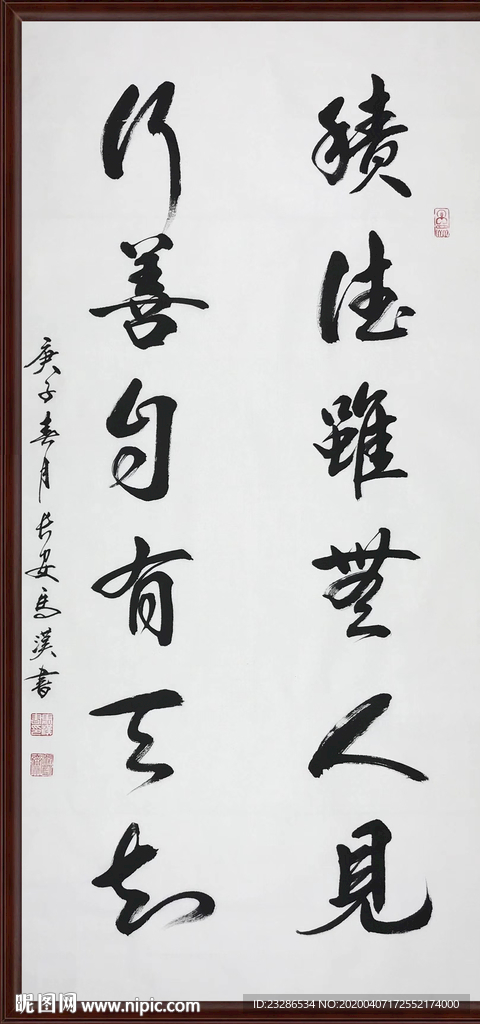 積德雖無人見
行善自有天知
庚子春月長安馬漢書
昵图网 www.nipic.com
ID:23286534 NO:20200407172552174000